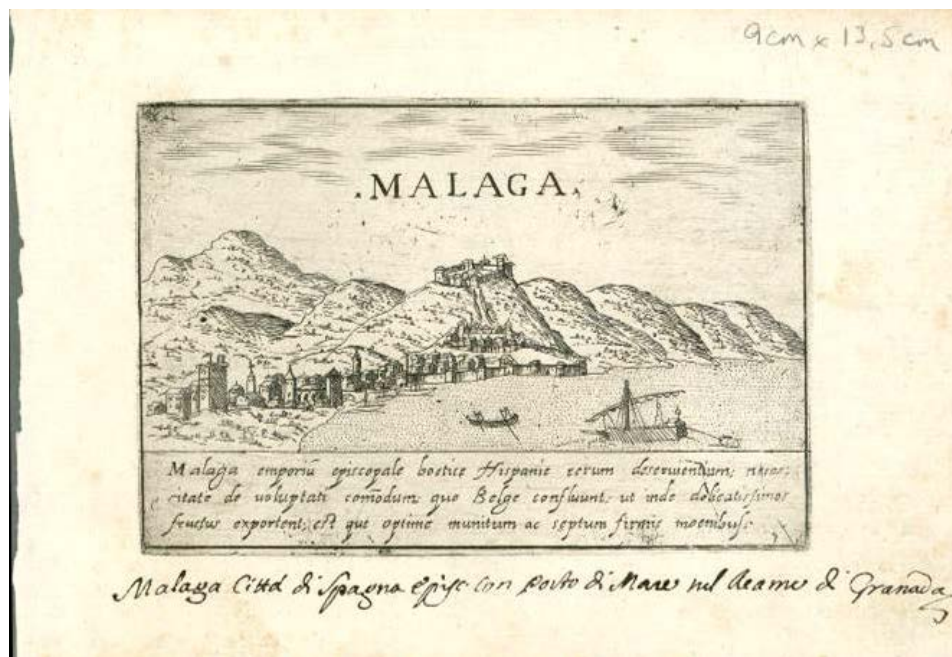 9cm x 13,5cm
.MALAGA.
Malaga emporiū episcopale boetice Hispanie rerum deseruientium;
ritate de uoluptati comōdum; quo Belge confluunt; ut inde delicatissimos
fructus exportent; est que optime munitum ac septum firmis moenibus:
Malaga Città di Spagna Episc: con porto di Mare nel Reame di Granada